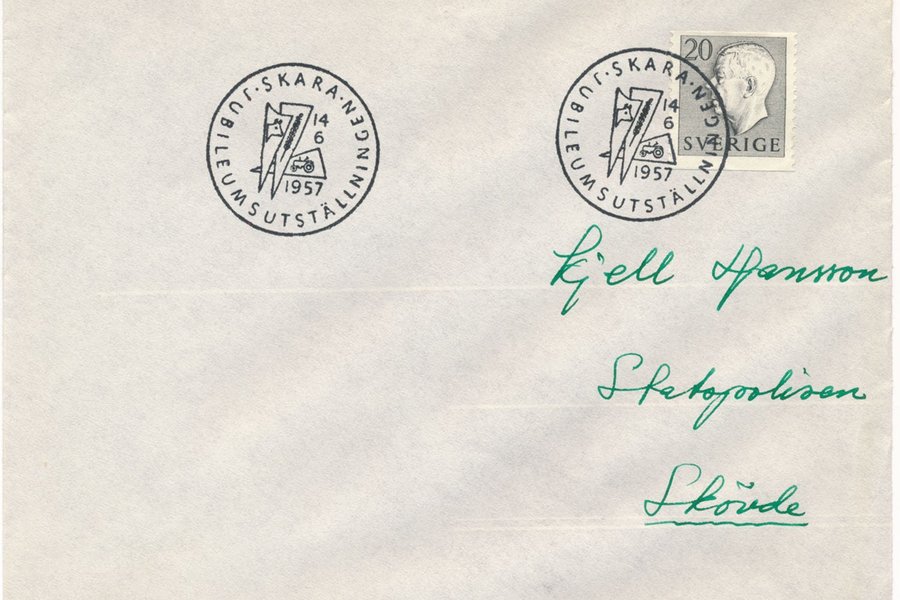 SKARA · JUBILEUMSUTSTÄLLNINGEN ·
14
6
1957
SKARA · JUBILEUMSUTSTÄLLNINGEN ·
14
6
1957
20
SVERIGE
Kjell Hansson
Statspolisen
Skövde